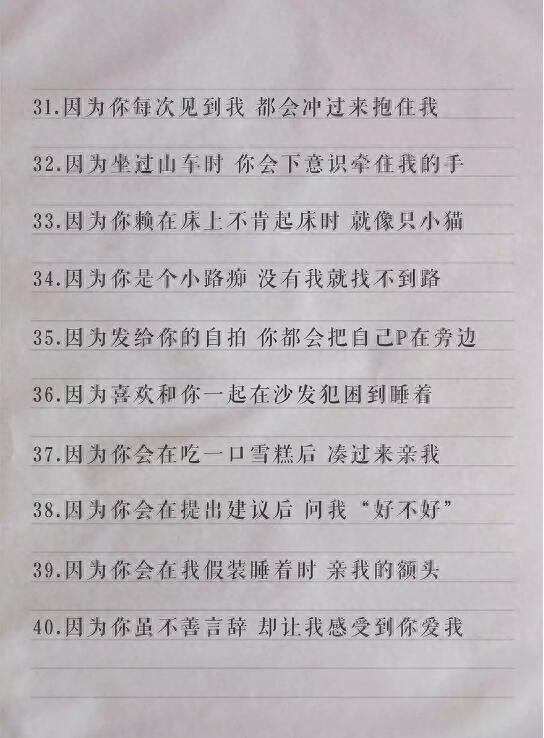 31.因为你每次见到我 都会冲过来抱住我
32.因为坐过山车时 你会下意识牵住我的手
33.因为你赖在床上不肯起床时 就像只小猫
34.因为你是个小路痴 没有我就找不到路
35.因为发给你的自拍 你都会把自己P在旁边
36.因为喜欢和你一起在沙发犯困到睡着
37.因为你会在吃一口雪糕后 凑过来亲我
38.因为你会在提出建议后 问我“好不好”
39.因为你会在我假装睡着时 亲我的额头
40.因为你虽不善言辞 却让我感受到你爱我